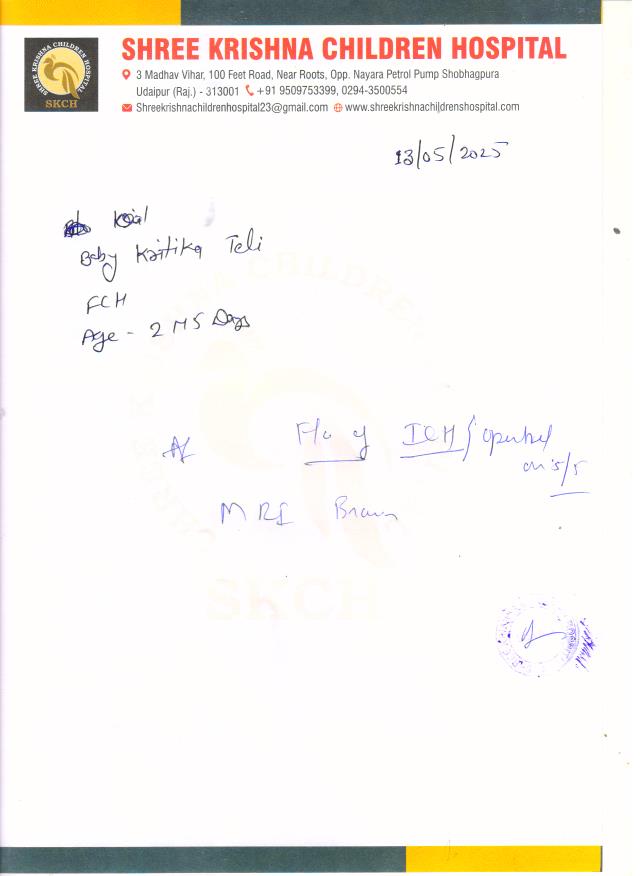 SHREE KRISHNA CHILDREN HOSPITAL
SHREE KRISHNA CHILDREN HOSPITAL
SKCH
3 Madhav Vihar, 100 Feet Road, Near Roots, Opp. Nayara Petrol Pump Shobhagpura
Udaipur (Raj.) - 313001 +91 9509753399, 0294-3500554
Shreekrishnachildrenhospital23@gmail.com www.shreekrishnachildrenshospital.com
13/05/2025
Baby Kritika Teli
FCH
Age - 2 M 5 Days
F/u of ICH / operated
on 5/5
MRI Brain
SKCH